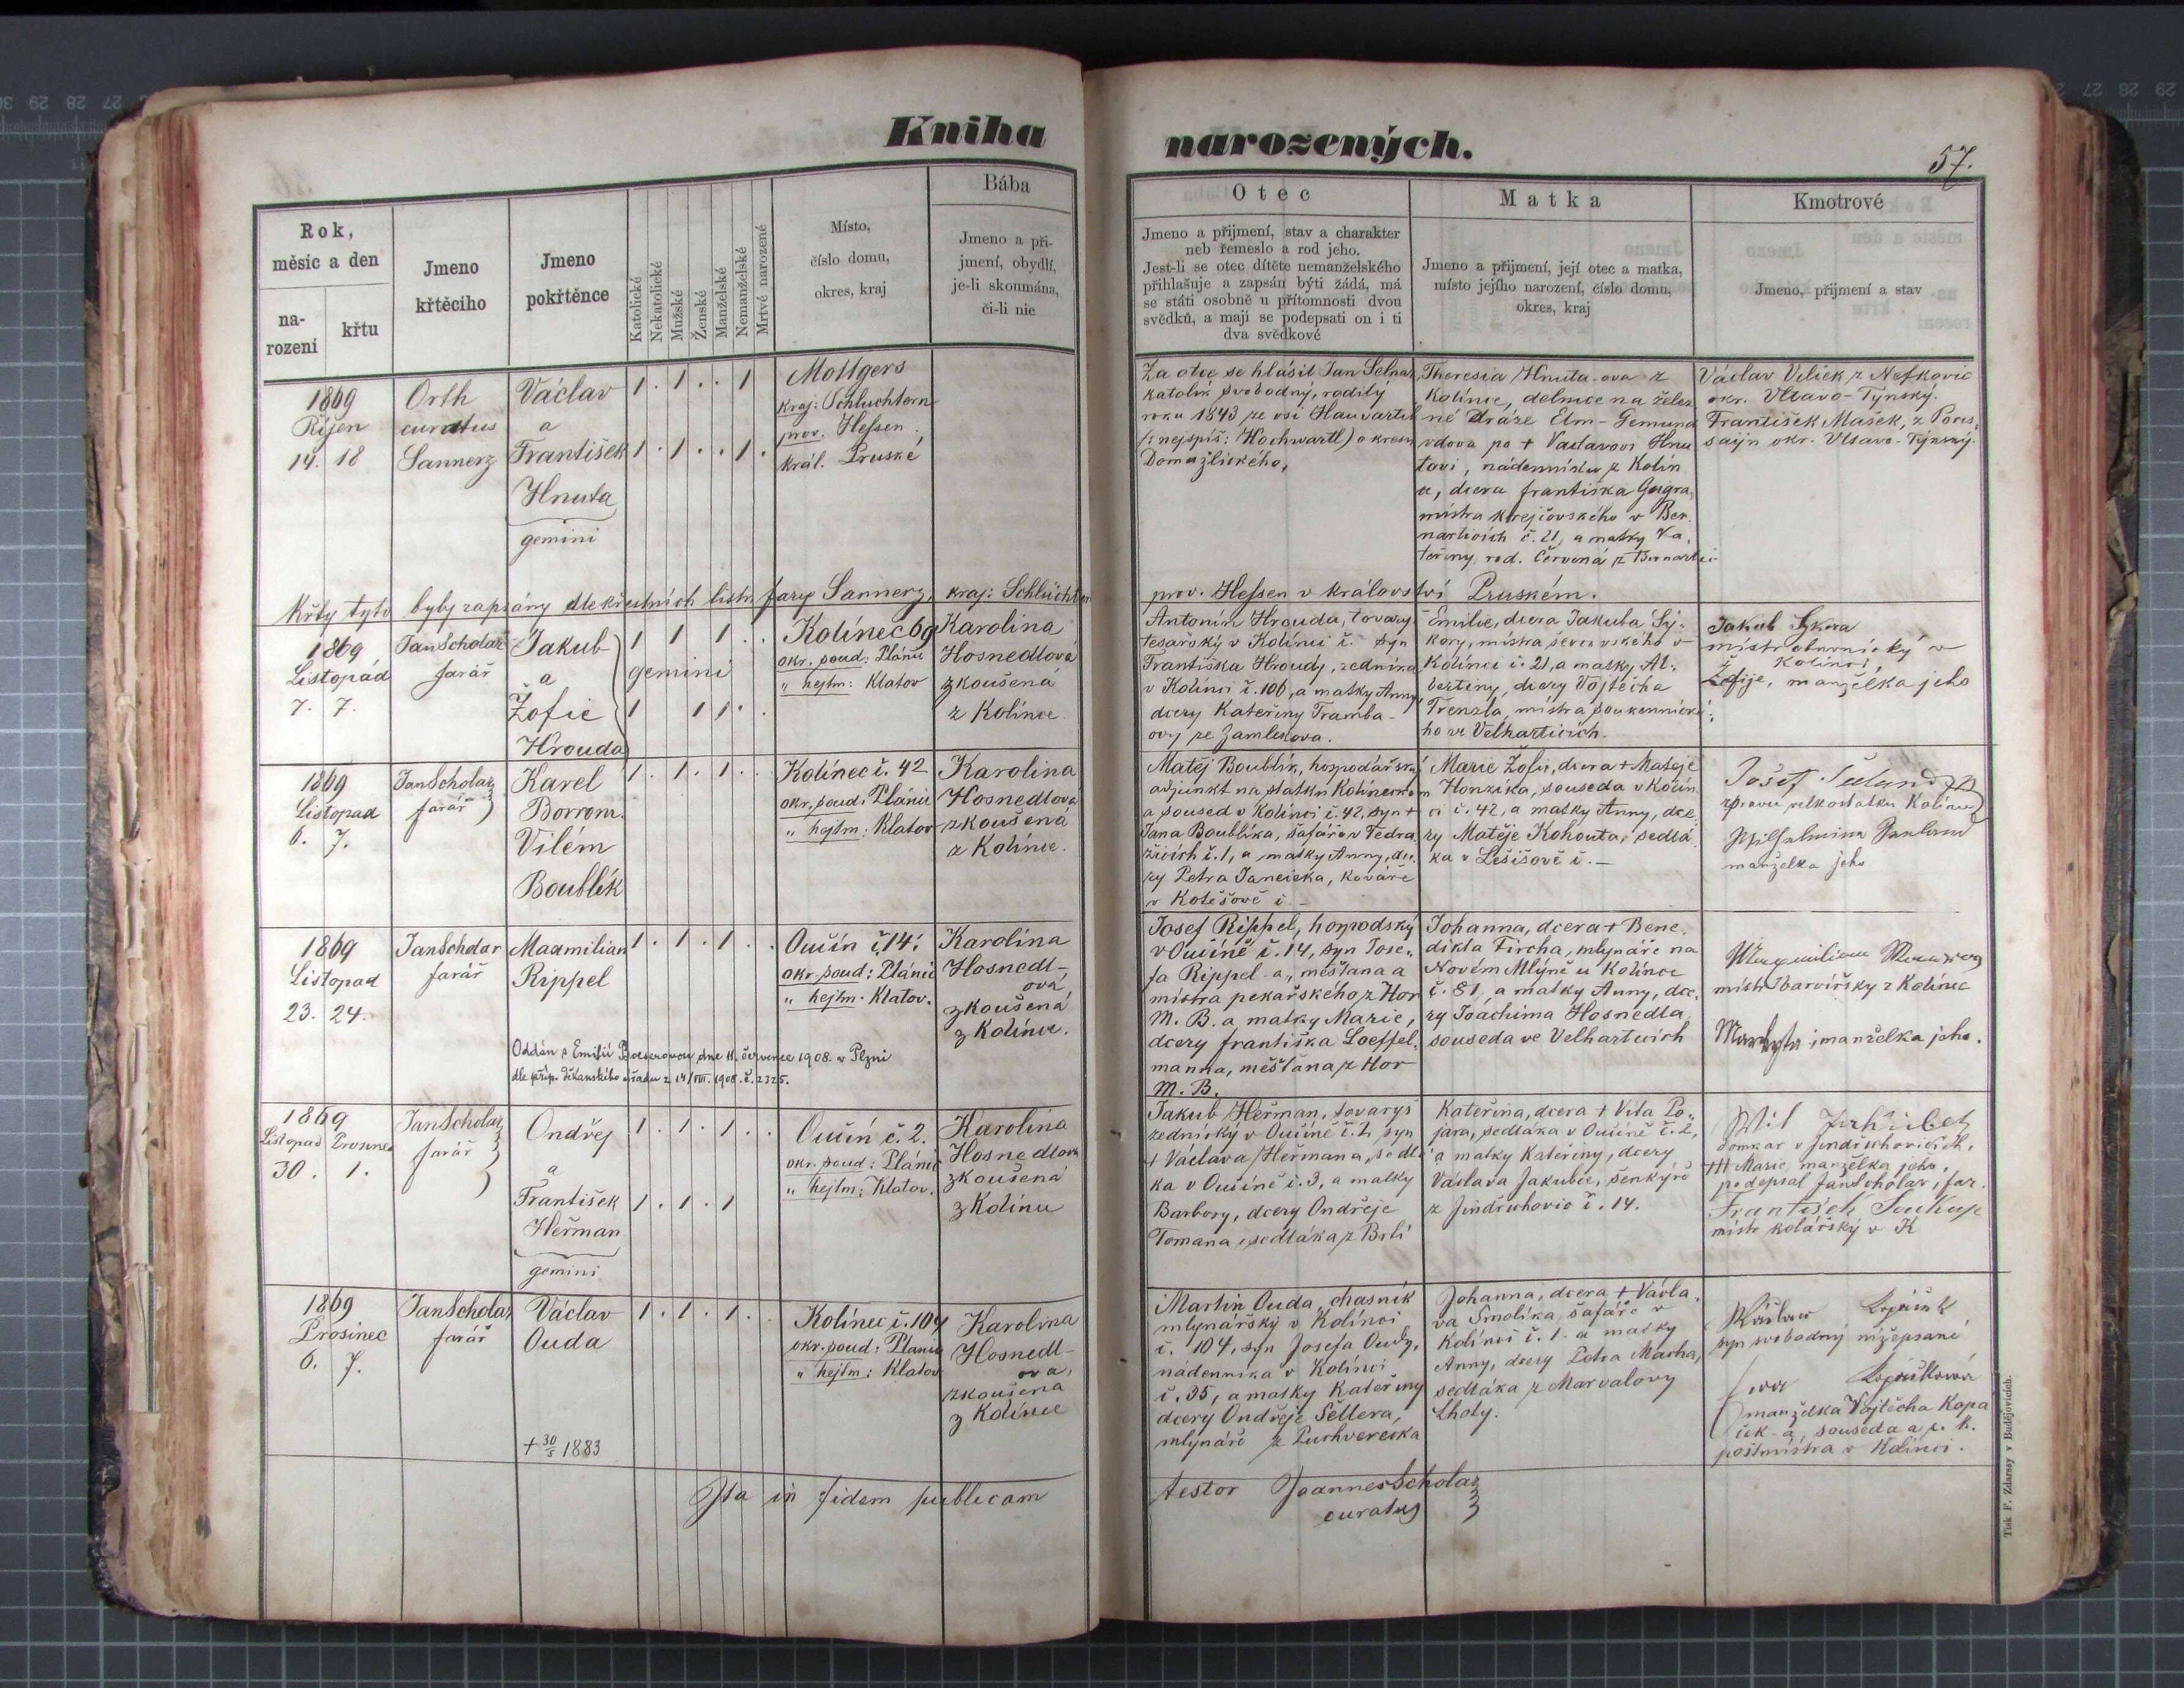 Kniha
narozených.
57.
Rok,
měsic a den
na-
rozeni
křtu
Jmeno
křtěciho
Jmeno
pokřtěnce
Katolické
Nekatolické
Mužské
Ženské
Manželské
Nemanželské
Mrtvě narozené
Místo,
číslo domu,
okres, kraj
Bába
Jmeno a při-
jmení, obydlí,
je-li skoumána,
či-li nic
Otec
Jmeno a přijmení, stav a charakter
neb řemeslo a rod jeho.
Jest-li se otec dítěte nemanželského
přihlašuje a zapsán býti žádá, má
se státi osobně u přítomnosti dvou
svědků, a mají se podepsati on i ti
dva svědkové
Matka
Jmeno a přijmení, její otec a matka,
místo jejího narození, číslo domu,
okres, kraj
Kmotrové
Jmeno, přijmení a stav
1869
Říjen
14. 18
Orth
curatus
Sannerz
Václav
a
František
Hnuta
gemini
1 . 1 . . 1
1 . 1 . . 1 .
Mottgers
kraj: Schluchtern
prov. Hessen
král. Pruské
Za otce se hlásil Jan
katolík svobodný, rodilý
roku 1843 ze vsi
(: nejspíš: Hochwartl) okresu
Domažlického,
Theresia Hnuta-ova z
Kolince, dělnice na želez
né dráze Elm-Gemund
vdova po + Vaclavovi Hnu
tovi, nádenníku z Kolin
ce, dcera františka
mistra krejčovského v Ber
narticích č. 21, a matky Ka
teřiny rod. Červená z Bernartic
Václav Vlček z Nefkovic
okr. Vltavo-Týnský.
František Mašek, z
okr. Vltavo-Týnský.
Křty tyto byly zapsány dle křestních listů fary Sannerz, kraj: Schlüchtern
prov. Hessen v království Pruském.
1869
Listopád
7. 7.
Jan Scholar
farář
Jakub
a
Žofie
Hrouda
1 1 1 . .
gemini
1 1 1 . .
Kolínec 69
okr. soud: Plánic
" hejtm: Klatov
Karolina
Hosnedlová
zkoušená
z Kolince.
Antonín Hrouda, tovaryš
tesařský v Kolínci č. syn
Františka Hroudy, zedníka
v Kolínci č. 106, a matky Anny,
dcery Kateřiny Tramba-
ovy ze Zamlekova.
Emilie, dcera Jakuba Sý-
kory, mistra ševcovského v
Kolínci č. 21, a matky Al-
bertiny, dcery Vojtěcha
Frenzla, mistra soukennické
ho ve Velharticích.
Jakub Sykora
mistr obuvnický v
Kolínci,
Žofije, manželka jeho
1869
Listopad
6. 7.
Jan Scholar
farář
Karel
Borrom.
Vilém
Boublík
1 . 1 . 1 . .
Kolínec č. 42
okr. soud: Plánic
" hejtm: Klatov
Karolina
Hosnedlová
zkoušená
z Kolince.
Matěj Boublík, hospodářský
adjunkt na statku Kolineckém
a soused v Kolínci č. 42, syn +
Jana Boublíka, šafáře v Tedra
žicích č. 1, a matky Anny, dce
ry Petra Janečka, kováře
v Kotěšově č. -
Marie Žofie, dcera + Matěje
Honzíka, souseda v Kolín
ci č. 42, a matky Anny, dce
ry Matěje Kohouta, sedlá
ka v Lešišově č. -
Josef
správce velkostatku Kolinec
manželka jeho
1869
Listopad
23. 24.
Jan Scholar
farář
Maxmilian
Rippel
1 . 1 . 1 . .
Oučín č. 14.
okr. soud: Plánic
" hejtm. Klatov.
Karolina
Hosnedl-
ová
zkoušená
z Kolince.
Oddán s Emilií dne 11. července 1908. v Plzni
dle příp. děkanského úřadu z 14/VII. 1908. č. 2325.
Josef Rippel, hospodský
v Oučíně č. 14, syn Jose-
fa Rippel-a, měšťana a
mistra pekařského z Hor
M. B. a matky Marie,
dcery františka Loeffel-
manna, měšťana z Hor
M. B.
Johanna, dcera + Bene-
dikta Fircha, mlynáře na
Novém Mlýně u Kolince
č. 81, a matky Anny, dce-
ry Joachima Hosnedla
souseda ve Velharticích
Maxmilian
mistr barvířsky z Kolinec
Markyta, manželka jeho.
1869
Listopad Prosinec
30. 1.
Jan Scholar
farář
Ondřej
a
František
Heřman
gemini
1 . 1 . 1 . .
1 . 1 . 1
Oučín č. 2.
okr. soud: Plánic
" hejtm: Klatov.
Karolina
Hosnedlová
zkoušená
z Kolince
Jakub Heřman, tovaryš
zednický v Oučíně č. 2, syn
+ Václava Heřmana, sedlá
ka v Oučíně č. 3, a matky
Barbory, dcery Ondřeje
Tomana, sedláka z Brtí
Kateřina, dcera + Víta Po-
jara, sedláka v Oučíně č. 2,
a matky Kateřiny, dcery
Václava Jakubce, šenkýře
z Jindřichovic č. 14.
domkar v Jindřichovicích,
+++ Marie, manželka jeho,
podepsal Jan Scholar, far.
František Soukup
mistr kolářský v K
1869
Prosinec
6. 7.
Jan Scholar
farář
Václav
Ouda
+ 30/5 1883
1 . 1 . 1 . .
Kolínec č. 104
okr. soud: Planic
" hejtm: Klatov
Karolina
Hosnedl-
ova,
zkoušená
z Kolince
Martin Ouda, chasník
mlynářský v Kolínci
č. 104, syn Josefa Oudy,
nádenníka v Kolínci
č. 35, a matky Kateřiny
dcery Ondřeje Šellera,
mlynáře z Puchverecka
Johanna, dcera + Václa-
va Smolíka, šafáře v
Kolínci č. 1. a matky
Anny, dcery Petra Macha,
sedláka z Marvalovy
Lhoty.
syn svobodný nížepsané
manželka Vojtěcha Kopa
ček-a, souseda a c. k.
poštmistra v Kolínci.
Ita in fidem publicam
testor Joannes Scholar
curatus
Tisk F. Zdarssy v Budějovicích.